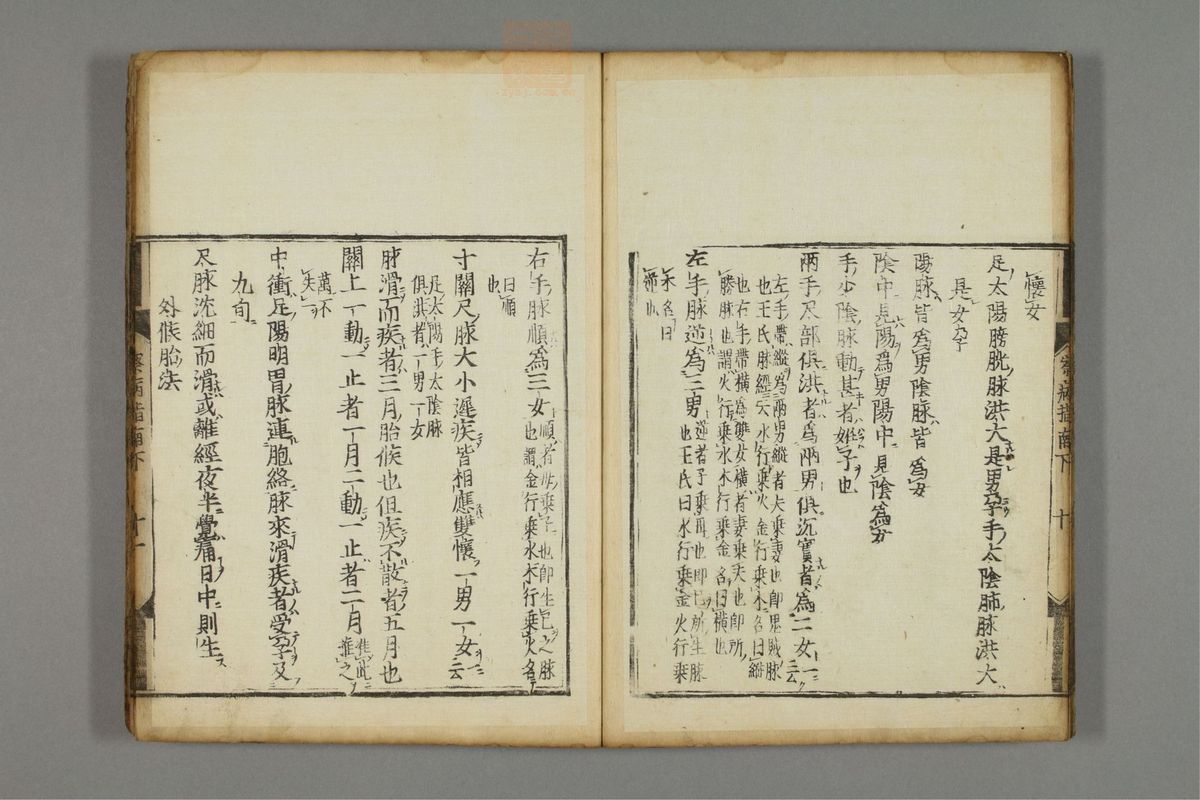 懷女
足太陽膀胱脉洪大是男孕手太陰肺脉洪大
是女孕
陽脉皆爲男陰脉皆爲女
陰中見陽爲男陽中見陰爲女
手少陰脉動甚者姙子也
兩手尺部俱洪者爲兩男俱沉實者爲二女一云
左手帶縱爲兩男縱者夫乘妻也即鬼賊脉
也王氏脉經云水行乘火金行乘木名曰縱
也右手帶橫爲雙女橫者妻乘夫也即所
勝脉也謂火行乘水木行乘金名曰橫也
左手脉逆爲三男逆者子乘母也即己所生脉
也王氏曰水行乘金火行乘
木名曰
逆也
右手脉順爲三女順者母乘子也即生己之脉
也謂金行乘水木行乘火名
曰順
也
寸關尺脉大小遲疾皆相應雙懷一男一女一云
足太陽手太陰脉
俱洪者一男一女
脉滑而疾者三月胎候也但疾不散者五月也
關上一動一止者一月二動一止者二月准此
推之
萬不
失一
中衝足陽明胃脉連胞絡脉來滑疾者受孕及
九旬
尺脉沈細而滑或離經夜半覺痛日中則生
外候胎法
察病指南下 十
察病指南下 十一